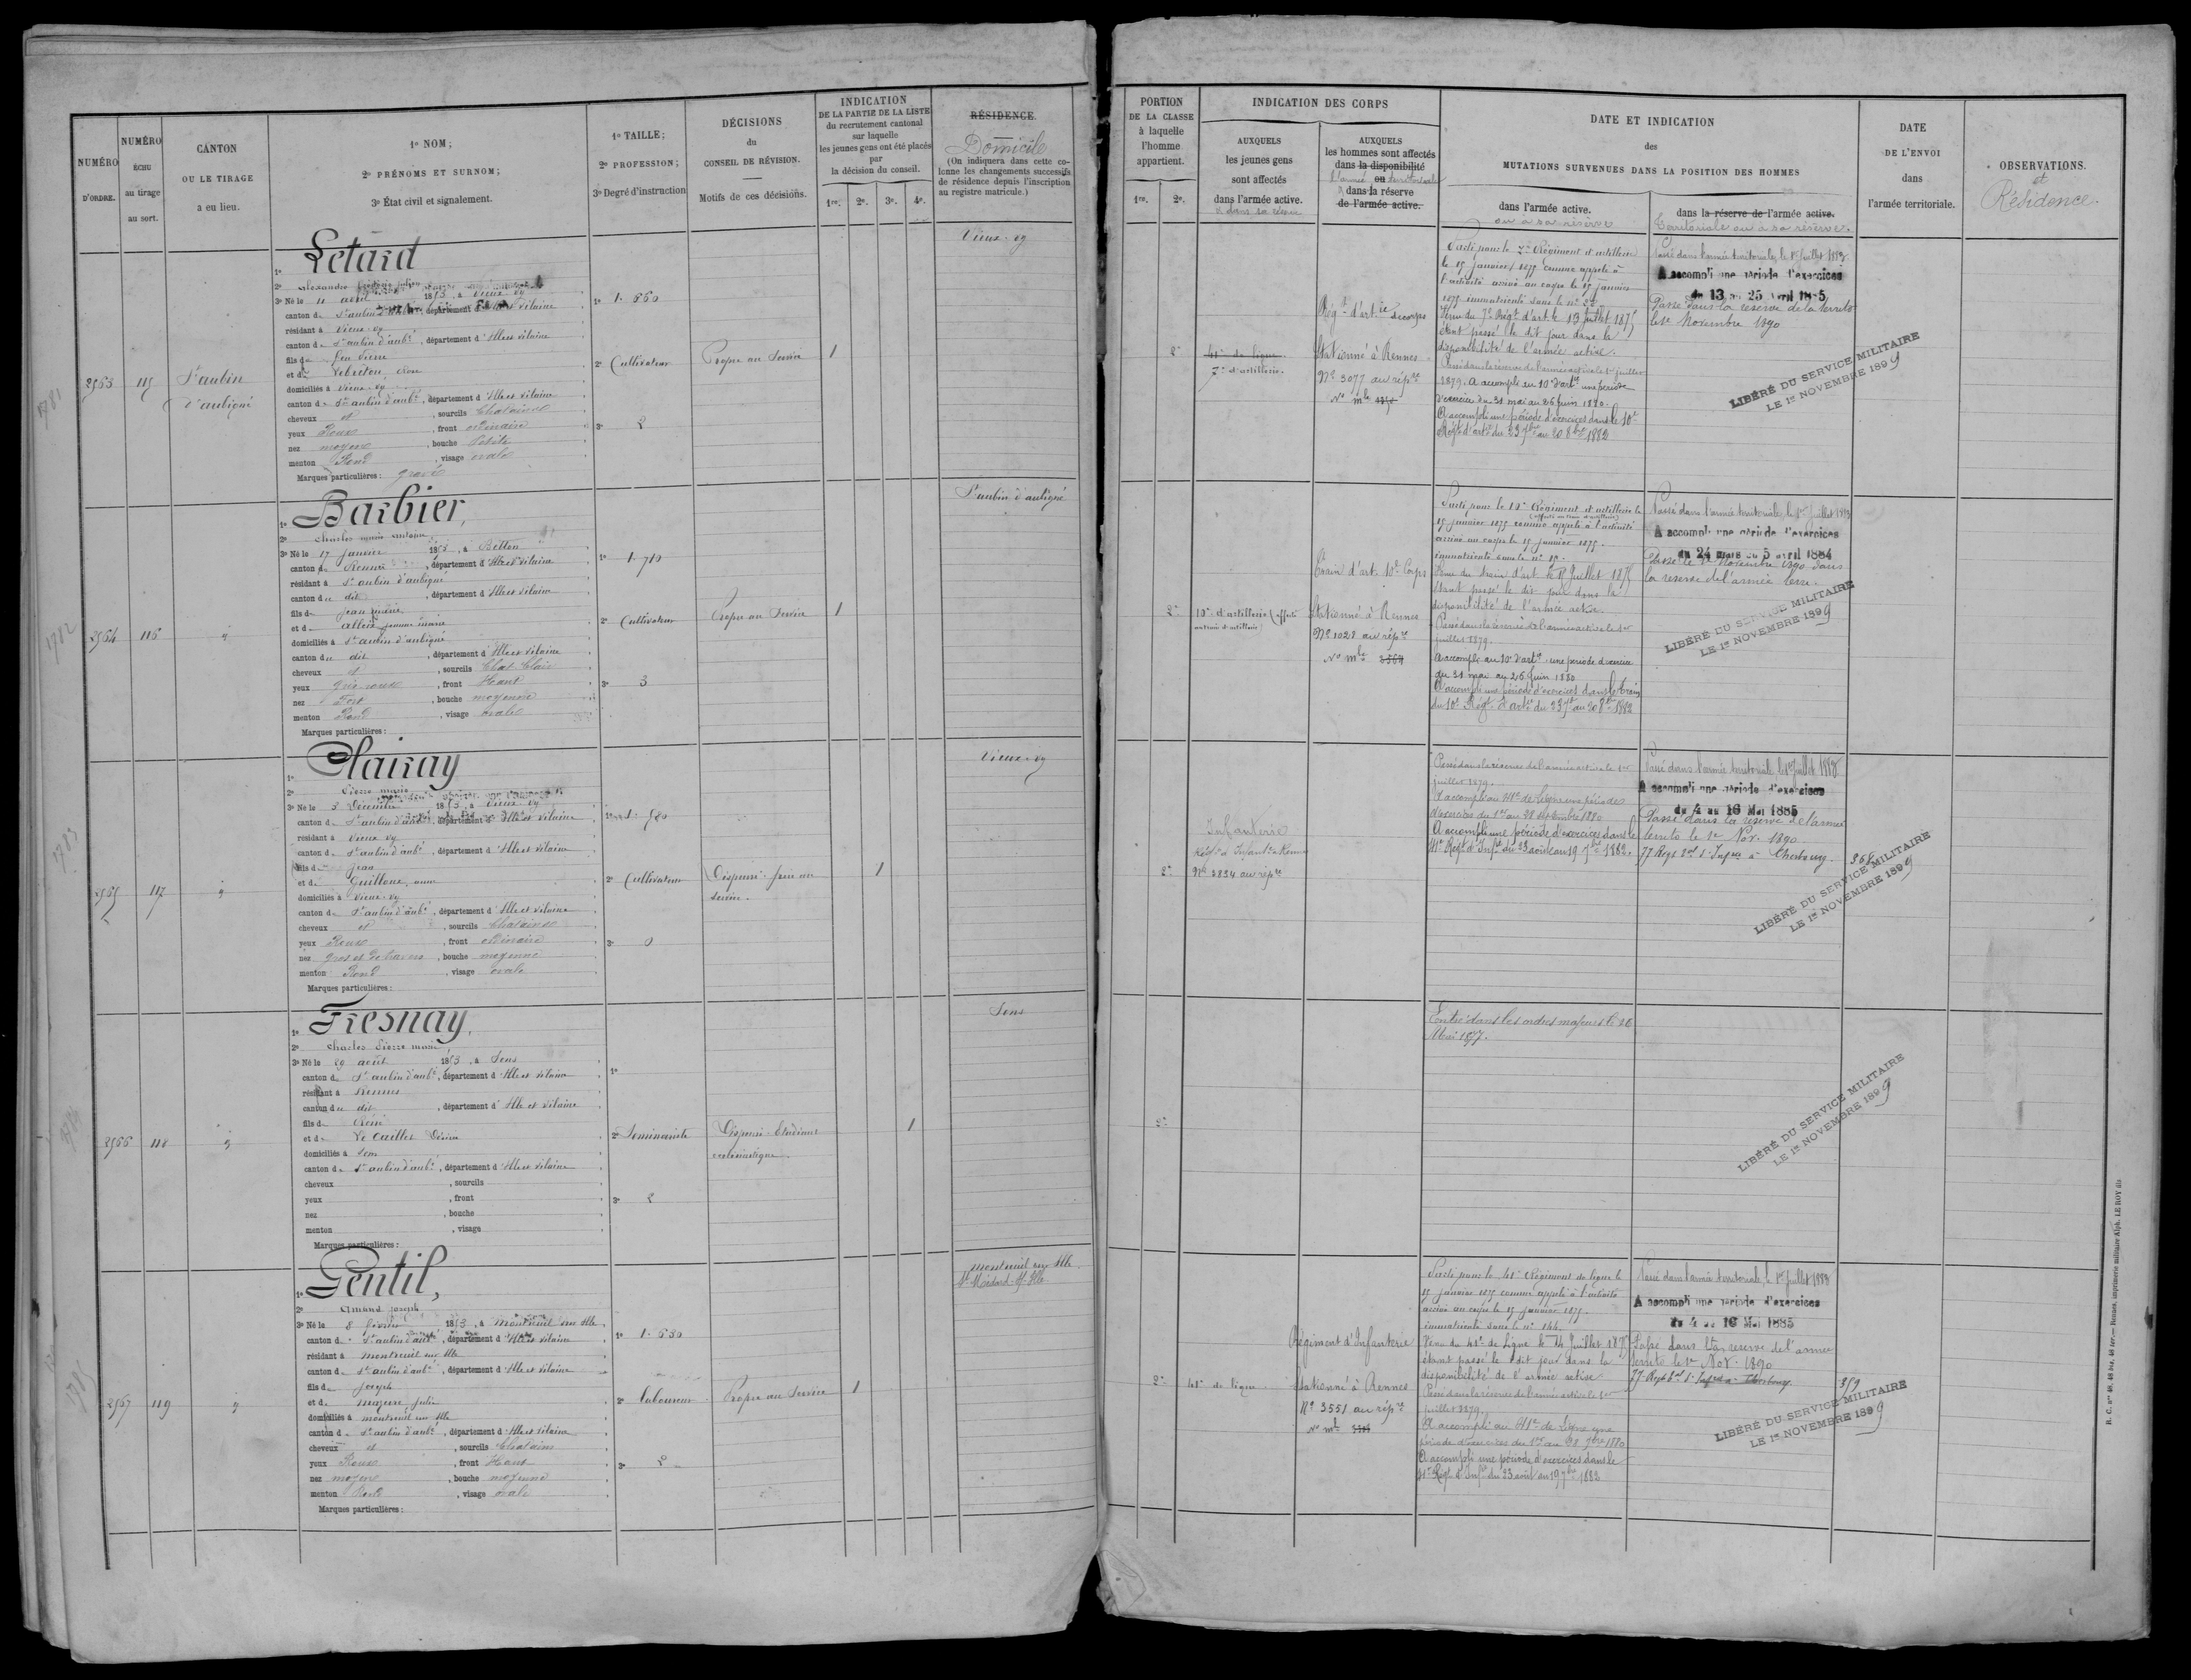 NUMÉRO
D'ORDRE.
NUMÉRO
ÉCHU
au tirage
au sort.
CANTON
OU LE TIRAGE
a eu lieu.
1º NOM;
2º PRÉNOMS ET SURNOM;
3º État civil et signalement.
1º TAILLE;
2º PROFESSION;
3º Degré d'instruction
DÉCISIONS
du
CONSEIL DE RÉVISION.
Motifs de ces décisions.
INDICATION
DE LA PARTIE DE LA LISTE
du recrutement cantonal
sur laquelle
les jeunes gens ont été placés
par
la décision du conseil.
1re. 2e. 3e. 4e.
RÉSIDENCE.
Domicile
(On indiquera dans cette co-
lonne les changements successifs
de résidence depuis l'inscription
au registre matricule.)
PORTION
DE LA CLASSE
à laquelle
l'homme
appartient.
1re. 2e.
INDICATION DES CORPS
AUXQUELS
les jeunes gens
sont affectés
dans l'armée active.
& dans sa réserve
AUXQUELS
les hommes sont affectés
dans la disponibilité
ou
l'armée territoriale
dans la réserve
de l'armée active.
DATE ET INDICATION
des
MUTATIONS SURVENUES DANS LA POSITION DES HOMMES
dans l'armée active.
ou à sa réserve
dans la réserve de l'armée active.
Territoriale ou à sa réserve.
DATE
DE L'ENVOI
dans
l'armée territoriale.
OBSERVATIONS.
et
Résidence.
2563
115
St aubin
d'aubigné
1º Letard
2º Alexandre
3º Né le 11 avril 1853, à Vieux vy
canton de St aubin d'aubé, département d'Ille et vilaine
résidant à Vieux-vy
canton de St aubin d'aubé, département d'Ille et vilaine
fils de feu Pierre
et de
domiciliés à Vieux-vy
canton de St aubin d'aubé, département d'Ille et vilaine
cheveux et, sourcils Chatains
yeux Roux, front ordinaire
nez moyen, bouche Petite
menton Rond, visage ovale
Marques particulières: gravé
1º 1.660
2º Cultivateur
3º 2
Propre au Service
1
Vieux-vy
2e
41e de ligne.
7e d'artillerie.
Régt d'artie
Stationné à Rennes
Nº 3077 au répre
Nº mle
Parti pour le 7e Régiment d'artillerie
le 15 janvier 1875 comme appelé à
l'activité arrivé au corps le 15 janvier
1875 immatriculé sous le nº 22
Venu du 7e Régt d'art. le 13 juillet 1875
étant passé le dit jour dans la
disponibilité de l'armée active.
Passé dans la réserve de l'armée active le 1er juillet
1879. A accompli au 10e d'artie une période
d'exercice du 31 mai au 26 juin 1880.
A accompli une période d'exercices dans le 10e
Régt d'artie du 23 7bre au 20 8bre 1882
Passé dans l'armée territoriale, le 1er juillet 1883
A accompli une période d'exercices
du 13 au 25 Avril 1885
Passé dans la réserve de la territe
le 1er Novembre 1890
LIBÉRÉ DU SERVICE MILITAIRE
LE 1er NOVEMBRE 1899
2564
116
1º Barbier,
2º Charles marie
3º Né le 17 janvier 1853, à Betton
canton de Rennes, département d'Ille et vilaine
résidant à St aubin d'aubigné
canton du dit, département d'Ille et vilaine
fils de Jean marie
et de allais jeanne marie
domiciliés à St aubin d'aubigné
canton du dit, département d'Ille et vilaine
cheveux et, sourcils Chat. Clair
yeux gris roux, front Haut
nez Fort, bouche moyenne
menton Rond, visage ovale
Marques particulières:
1º 1.710
2º Cultivateur
3º 3
Propre au Service
1
St aubin d'aubigné
2e
10e d'artillerie (affecté
au train d'artillerie)
Train d'art. 10e Corps
Stationné à Rennes
Nº 1022 au répre
Nº mle
Parti pour le 10e Régiment d'artillerie le
(affecté au train d'artillerie)
15 janvier 1875 comme appelé à l'activité
arrivé au corps le 15 janvier 1875.
immatriculé sous le nº
Venu du train d'art. le juillet 1875
étant passé le dit jour dans la
disponibilité de l'armée active.
Passé dans la réserve de l'armée active le 1er
juillet 1879.
A accompli au 10e d'artie une période d'exercice
du 31 mai au 26 juin 1880
A accompli une période d'exercices dans le train
du 10e Régt d'artie du 23 7bre au 20 8bre 1882
Passé dans l'armée territoriale, le 1er juillet 1883
A accompli une période d'exercices
du 24 mars au 5 avril 1884
Passé le 1er Novembre 1890 dans
la réserve de l'armée terre.
LIBÉRÉ DU SERVICE MILITAIRE
LE 1er NOVEMBRE 1899
2565
117
1º Clairay
2º Pierre marie
3º Né le 5 Décembre 1853, à Vieux vy
canton de St aubin d'aubé, département d'Ille et vilaine
résidant à Vieux vy
canton de St aubin d'aubé, département d'Ille et vilaine
fils de Jean
et de Guilloux, anne
domiciliés à Vieux-vy
canton de St aubin d'aubé, département d'Ille et vilaine
cheveux et, sourcils Chatains
yeux Roux, front ordinaire
nez gros et de travers, bouche moyenne
menton Rond, visage ovale
Marques particulières:
1º 1.580
2º Cultivateur
3º 0
Dispensé. frère au
service.
1
Vieux-vy
2e
Infanterie
Nº 3834 au répre
Passé dans la réserve de l'armée active le 1er
juillet 1879.
A accompli au 41e de ligne une période
d'exercices du 1er au 28 septembre 1880
A accompli une période d'exercices dans le
41e Régt d'Infie du 23 août au 19 7bre 1882.
Passé dans l'armée territoriale, le 1er juillet 1883
A accompli une période d'exercices
du 4 au 16 Mai 1885
Passé dans la réserve de l'armée
territe le 1er Nov. 1890
77 Régt d'Infie à Cherbourg.
368
LIBÉRÉ DU SERVICE MILITAIRE
LE 1er NOVEMBRE 1899
2566
118
1º Fresnay,
2º Charles Pierre marie
3º Né le 29 août 1853, à Sens
canton de St aubin d'aubé, département d'Ille et vilaine
résidant à Rennes
canton du dit, département d'Ille et vilaine
fils de René
et de Le Cuiller Désirée
domiciliés à Sens
canton de St aubin d'aubé, département d'Ille et vilaine
cheveux, sourcils
yeux, front
nez, bouche
menton, visage
Marques particulières:
1º
2º Séminariste
3º 2
Dispensé. Etudiant
ecclésiastique.
1
Sens
2e
Entré dans les ordres majeurs le 26
Mai 1877.
LIBÉRÉ DU SERVICE MILITAIRE
LE 1er NOVEMBRE 1899
2567
119
1º Gentil,
2º Amand joseph
3º Né le 8 février 1853, à Montreuil sur Ille
canton de St aubin d'aubé, département d'Ille et vilaine
résidant à Montreuil sur Ille
canton de St aubin d'aubé, département d'Ille et vilaine
fils de joseph
et de mazure, julie
domiciliés à montreuil sur Ille
canton de St aubin d'aubé, département d'Ille et vilaine
cheveux et, sourcils Chatains
yeux Roux, front Haut
nez moyen, bouche moyenne
menton Rond, visage ovale
Marques particulières:
1º 1.630
2º Laboureur
3º 2
Propre au Service
1
montreuil sur Ille
St Médard-s/-Ille
2e
41e de ligne.
Régiment d'Infanterie
Stationné à Rennes
Nº 3551 au répre
Nº mle
Parti pour le 41e Régiment de ligne le
15 janvier 1875 comme appelé à l'activité
arrivé au corps le 15 janvier 1875.
immatriculé sous le nº 144.
Venu du 41e de Ligne le 14 juillet 1875
étant passé le dit jour dans la
disponibilité de l'armée active
Passé dans la réserve de l'armée active le 1er
juillet 1879.
A accompli au 41e de ligne une
période d'exercices du 1er au 28 7bre 1880
A accompli une période d'exercices dans le
41e Régt d'Infie du 23 août au 19 7bre 1882
Passé dans l'armée territoriale, le 1er juillet 1883
A accompli une période d'exercices
du 4 au 16 Mai 1885
Passé dans la réserve de l'armée
territe le 1er Nov. 1890
77 Régt d'Infie à Cherbourg
359
LIBÉRÉ DU SERVICE MILITAIRE
LE 1er NOVEMBRE 1899
1781
1782
1783
1784
1785
R. C. nos 48, 48 bis, 48 ter. — Rennes, imprimerie militaire Alph. LE ROY fils